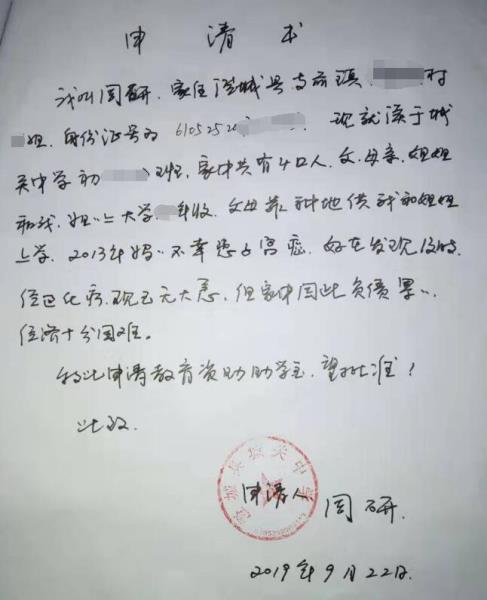 申请书
我叫周研，家住澄城县寺前镇 村
组，身份证号为 6105252 现就读于城
关中学初 班，家中共有4口人，父、母亲、姐姐
和我，姐姐上大学 年级，父母靠种地供我和姐姐
上学。2013年妈妈不幸患了宫癌，好在发现及时，
经过化疗，现已无大恙，但家中因此负债累累，
经济十分困难。
特此申请教育资助助学金，望批准！
此致
申请人 周研.
2019年9月22日.